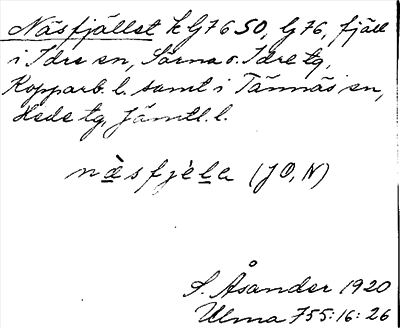 Näsfjället k G76 SO, G76, fjäll
i Idre sn, Särna o. Idre tg,
Kopparb. l. samt i Tännäs sn,
Hede tg, Jämtl. l.
næ̀sfjèla (JO, N)
S. Åsander 1920
Ulma 755:16:26